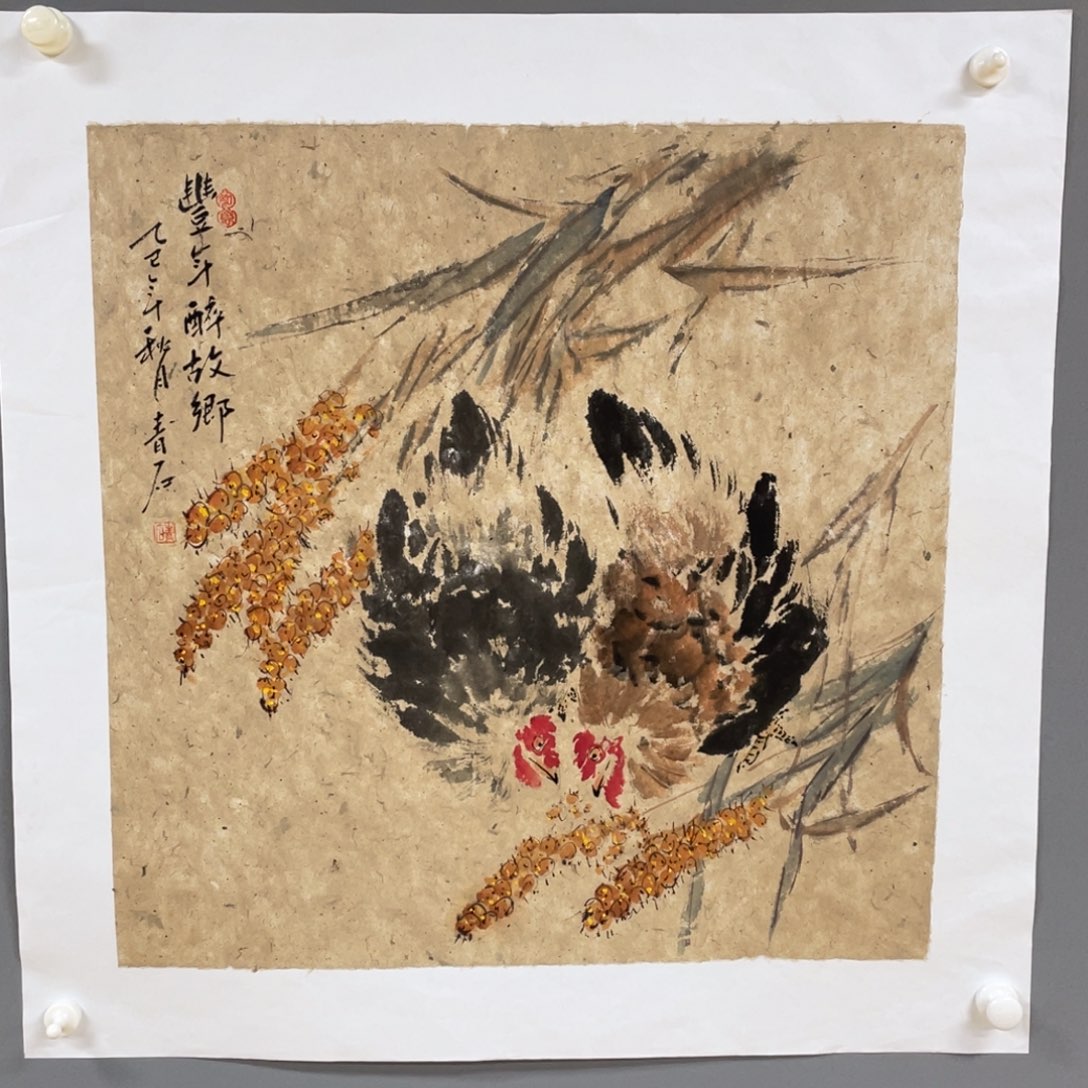 豐年醉故鄉
乙巳年秋月青石